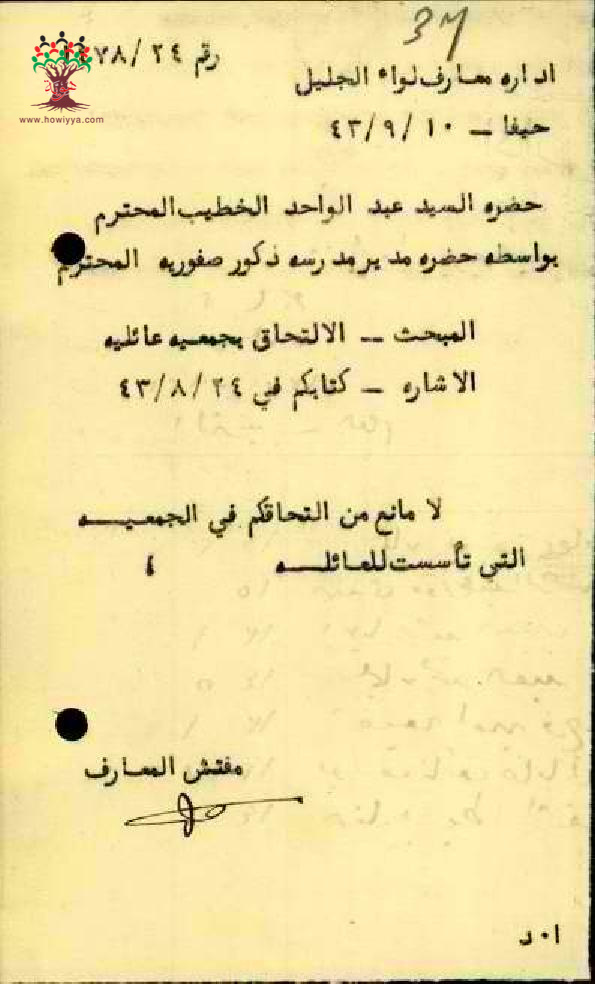 37
رقم ٢٤/
اداره معارف لواء الجليل
حيفا – ٤٣/٩/١٠
www.howiyya.com
حضره السيد عبد الواحد الخطيب المحترم
بواسطه حضره مدير مدرسه ذكور صفوريه المحترم
المبحث – الالتحاق بجمعيه عائليه
الاشاره – كتابكم في ٤٣/٨/٢٤
لا مانع من التحاقكم في الجمعيـــه
التي تأسست للعائلـــه ٤
مفتش المعارف
ا٠د